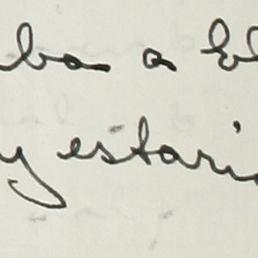 ba a el
y estari